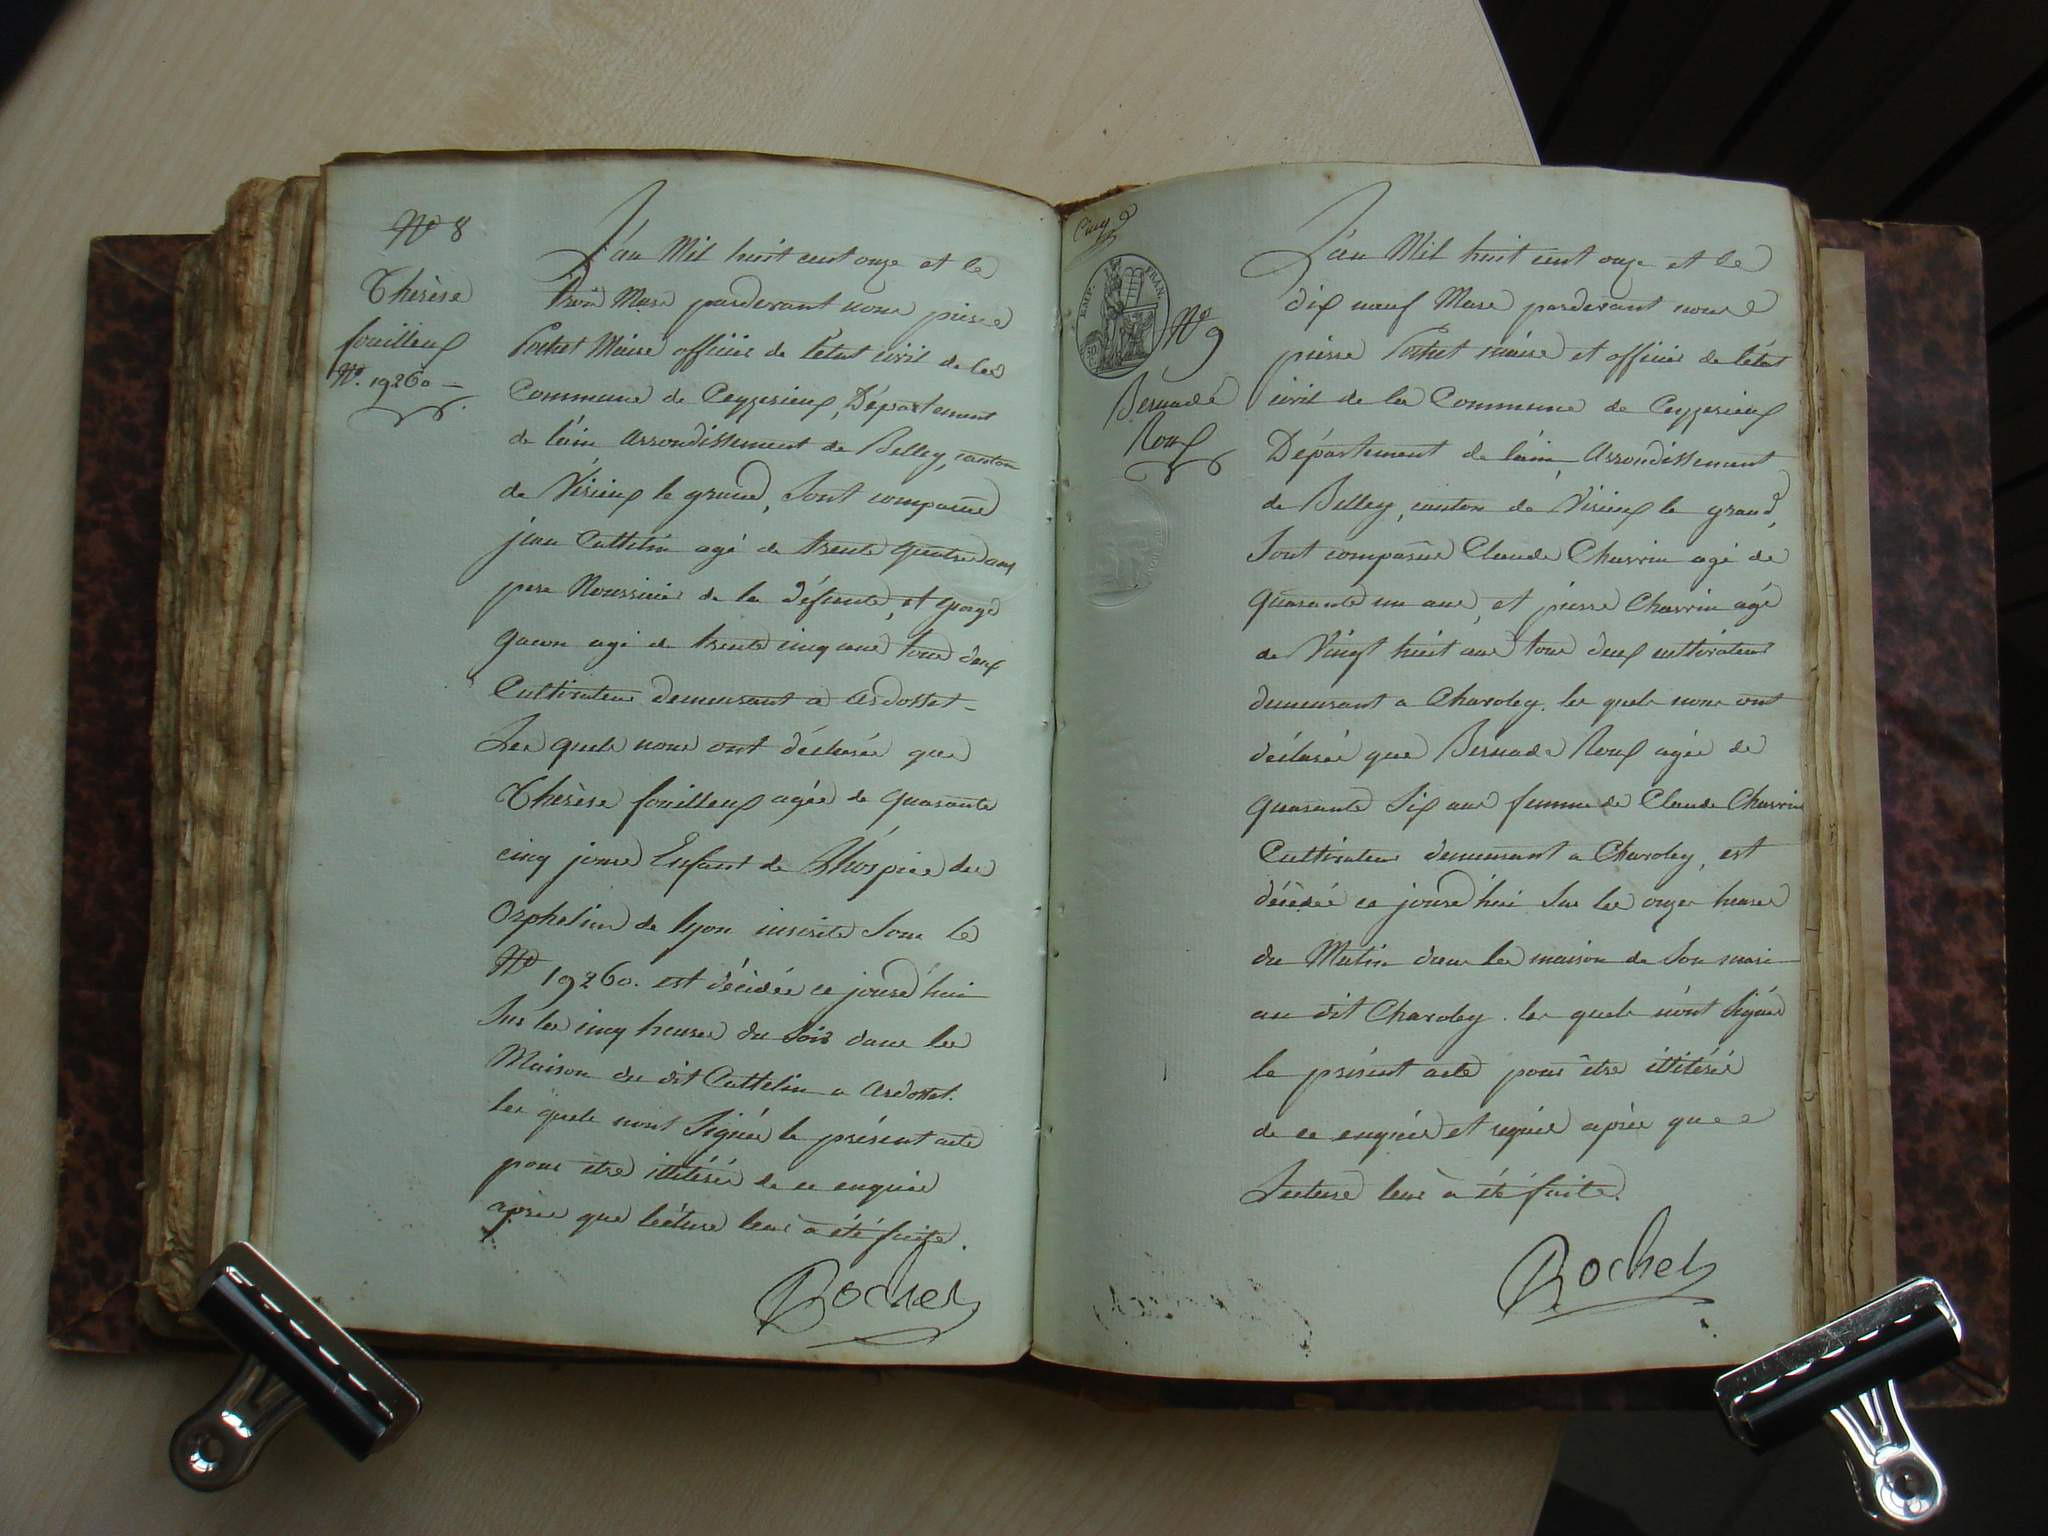 N° 8
Thérèse
fouilleux
N°. 19260 –
L'an Mil huit cent onze et le
trois Mars pardevant nous pierre
Rochet Maire officier de l'état civil de la
Commune de Ceyzerieux, Département
de l'ain arrondissement de Belley, canton
de Virieux le grand, Sont comparus
jean Cattelin agé de trente quatre ans
pere Nourricier de la défunte, et george
gacon agé de trente cinq ans tous deux
Cultivateurs demeurant a ardosset –
Les quels nous ont déclarés que
Thérèse fouilleux agée de quarante
cinq jours Enfant de L'hospice des
Orphelins de lyon inscrite sous le
N° 19260. est décédée ce jourd'hui
Sur les cinq heures du Soir dans la
Maison du dit Cattelin a ardosset.
les quels n'ont Signés le présent acte
pour être illitérés de ce enquis
après que lécture leur a été faite.
Rochet
Cinq
EMP. FRAN.
N° 9
Bernade
Roux
L'an Mil huit cent onze et le
dix neuf Mars pardevant nous
pierre Rochet maire et officier de l'état
civil de la Commune de Ceyzerieux
Département de l'ain, Arrondissement
de Belley, canton de Virieux le grand,
Sont comparus Claude Charvin agé de
quarante un ans, et pierre Charvin agé
de Vingt huit ans tous deux cultivateurs
demeurant a Charoley. les quels nous ont
déclarés que Bernade Roux agée de
quarante Six ans femme de Claude Charvin
Cultivateur demeurant a Charoley, est
décédée ce jourd'hui Sur les onze heures
du Matin dans la maison de Son mari
au dit Charoley. les quels n'ont Signés
le présent acte pour être illitérés
de ce enquis et requis après que
Lecture leur à été faite.
Rochet